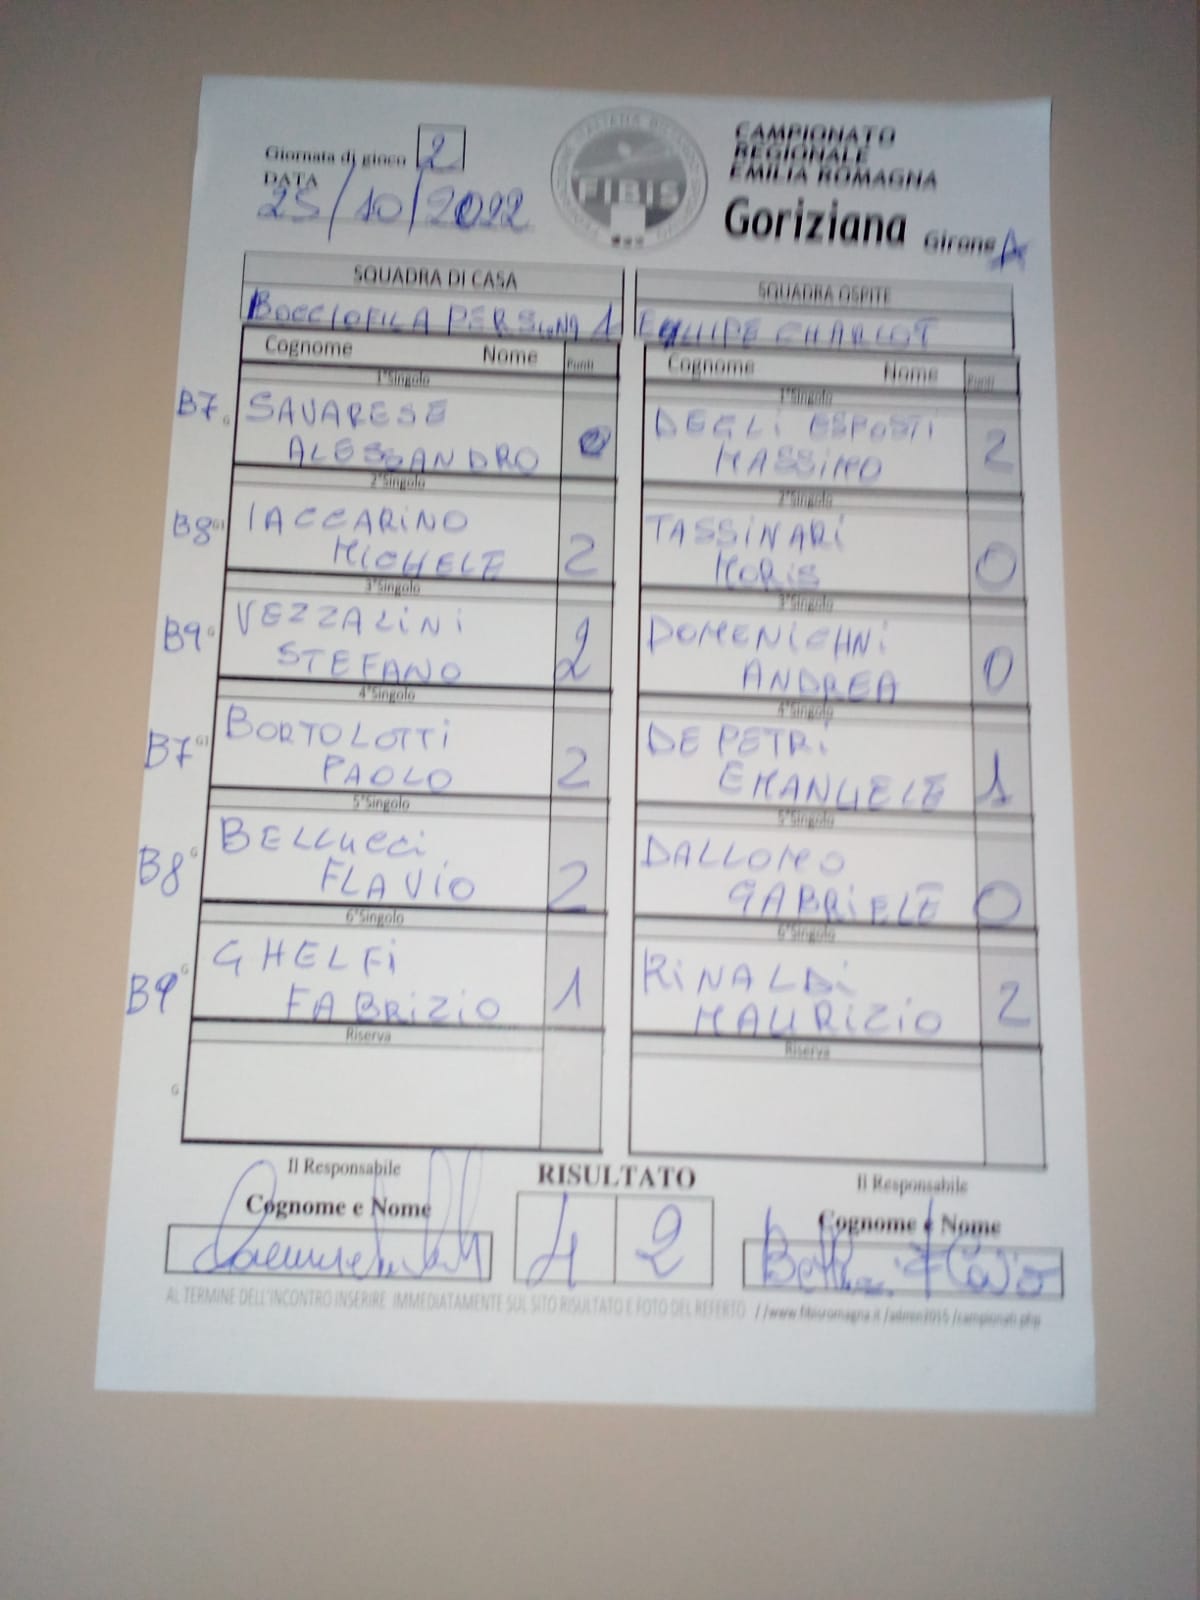 Giornata di gioco 2
DATA
25/10/2022
FIBIS
CAMPIONATO
REGIONALE
EMILIA ROMAGNA
Goriziana Girone A
SQUADRA DI CASA
BOCCIOFILA PERSIANA 1
Cognome Nome Punti
1°Singolo
B7 SAVARESE
ALESSANDRO 0
2°Singolo
B8 IACCARINO
MICHELE 2
3°Singolo
B9 VEZZALINI
STEFANO 2
4°Singolo
B7 BORTOLOTTI
PAOLO 2
5°Singolo
B8 BELLUCCI
FLAVIO 2
6°Singolo
B9 GHELFI
FABRIZIO 1
Riserva
G
SQUADRA OSPITE
EQUIPE CHARLOT
Cognome Nome Punti
1°Singolo
DEGLI ESPOSTI
MASSIMO 2
2°Singolo
TASSINARI
MORIS 0
3°Singolo
DOMENICHNI
ANDREA 0
4°Singolo
DE PETRI
EMANUELE 1
5°Singolo
DALLOMO
GABRIELE 0
6°Singolo
RINALDI
MAURIZIO 2
Riserva
Il Responsabile
Cognome e Nome
RISULTATO
4 2
Il Responsabile
Cognome e Nome
AL TERMINE DELL'INCONTRO INSERIRE IMMEDIATAMENTE SUL SITO RISULTATO E FOTO DEL REFERTO //www.fibisromagna.it/admin2015/campionati.php